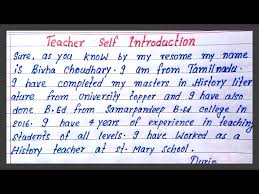 Teacher Self Introduction
Sure, as you know by my resume my name
is Bivha Choudhary. I am from Tamilnadu.
I have completed my masters in History liter
ature from university topper and I have also
done B.Ed from Samarpandeep B.Ed college in
2016. I have 4 years of experience in teaching
students of all levels. I have worked as a
History teacher at st. Mary school.